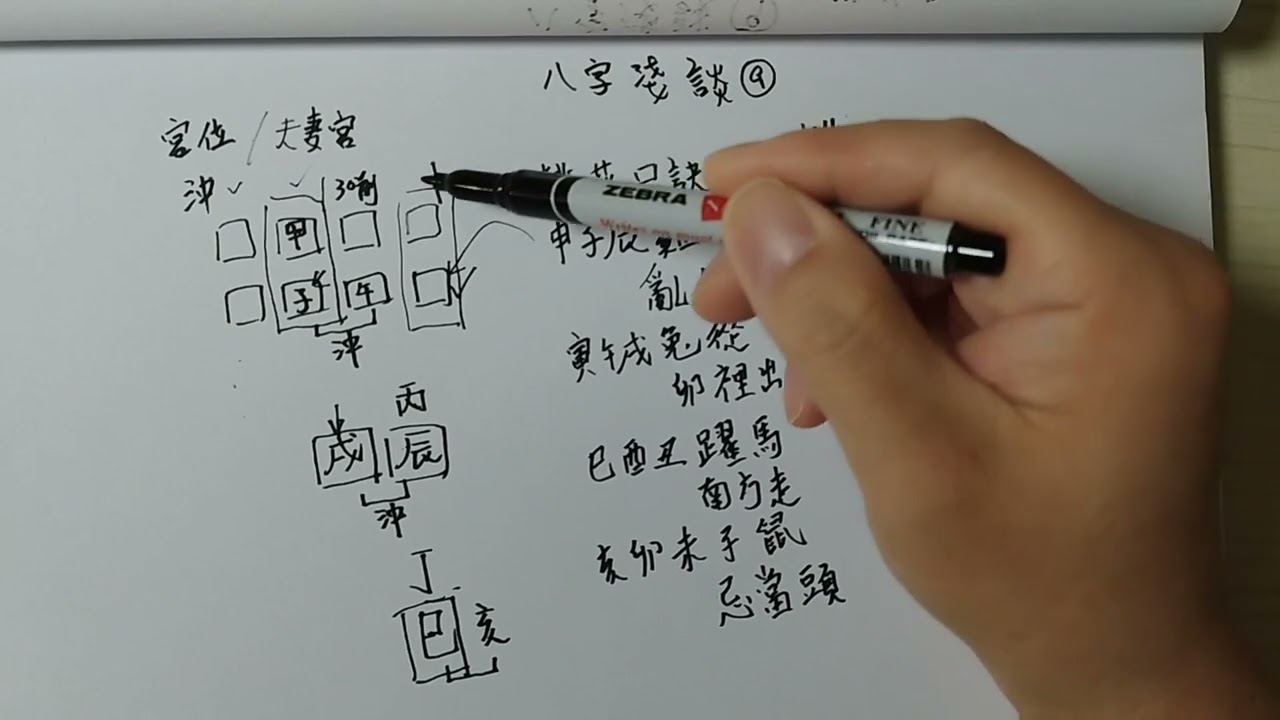 八字淺談⑨
宮位/夫妻宮
沖
30前
甲
子 午
沖
口訣
子辰
亂
寅午戌兔從
卯裡出
巳酉丑躍馬
南方走
亥卯未子鼠
忌當頭
丙
戌 辰
沖
丁
巳 亥
ZEBRA
FINE